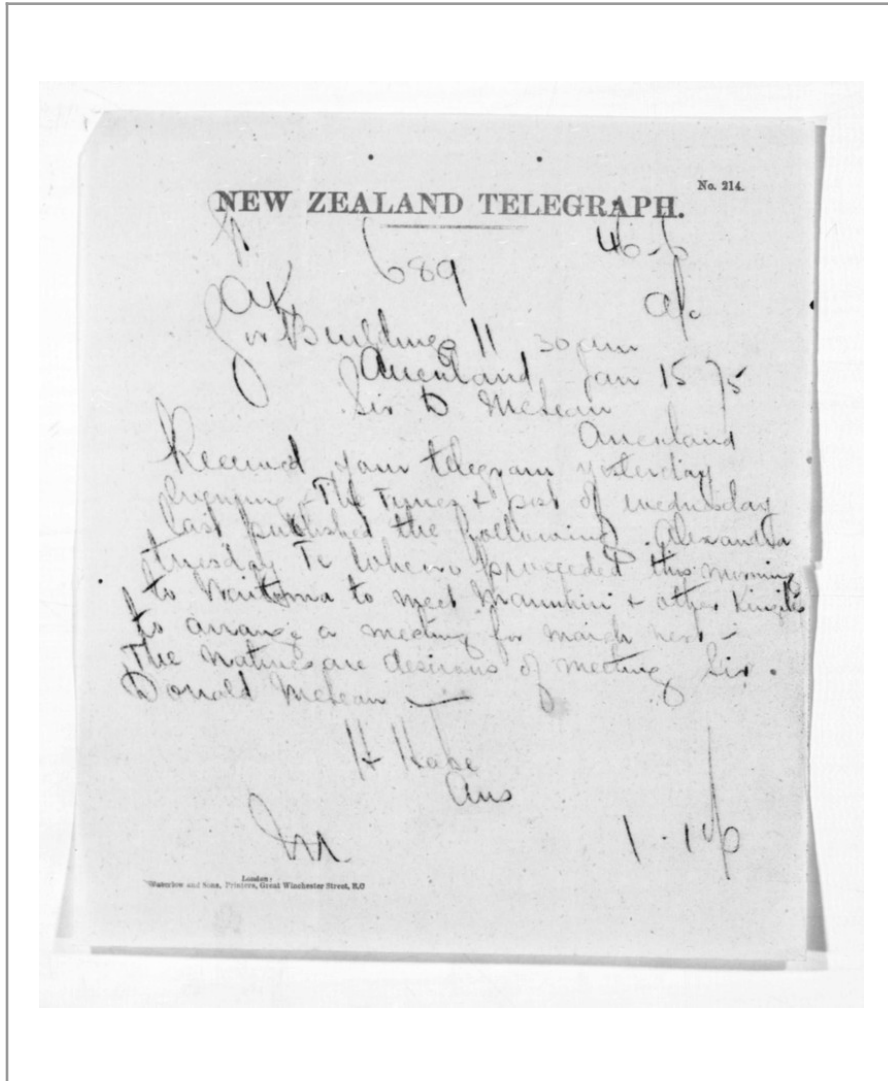 No. 214.
NEW ZEALAND TELEGRAPH.
689 46-6
AK
Gov Buildings 11 30 am
Auckland Jan 15 75
Sir D McLean
Auckland
Received your telegram yesterday
Evening - The Times & post of wednesday
last published the following. Alexandra
tuesday Te Whero proceeded this morning
to Waitomo to meet & other Kingites
to arrange a meeting for march next -
The Natives are desirous of meeting Sir
Donald McLean
H
London:
Waterlow and Sons, Printers, Great Winchester Street, E.C